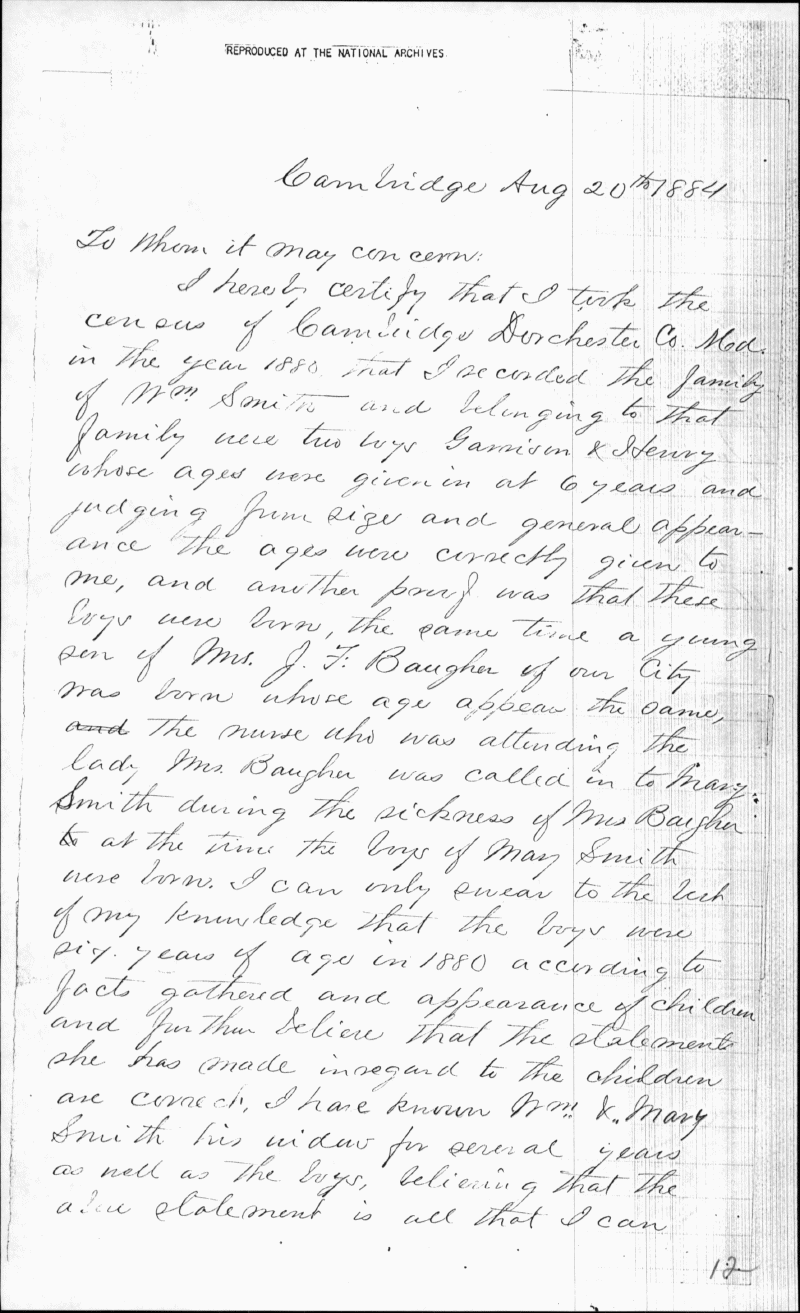 REPRODUCED AT THE NATIONAL ARCHIVES
Cambridge Aug 20th 1884
To Whom it may concern:
I hereby certify that I took the
census of Cambridge Dorchester Co. Md.
in the year 1880 that I recorded the family
of Wm Smith and belonging to that
family were two boys Garrison & Henry
whose ages were given in at 6 years and
judging from size and general appear-
ance the ages were correctly given to
me, and another proof was that these
boys were born, the same time a young
son of Mrs. J. F. Baugher of our City
was born whose age appear the same,
and the nurse who was attending the
lady Mrs. Baugher was called in to Mary
Smith during the sickness of Mrs Baugher
to at the time the boys of Mary Smith
were born. I can only swear to the best
of my knowledge that the boys were
six years of age in 1880 according to
facts gathered and appearance of children
and further believe that the statements
she has made in regard to the children
are correct, I have known Wm & Mary
Smith his widow for several years
as well as the boys, believing that the
above statement is all that I can
12